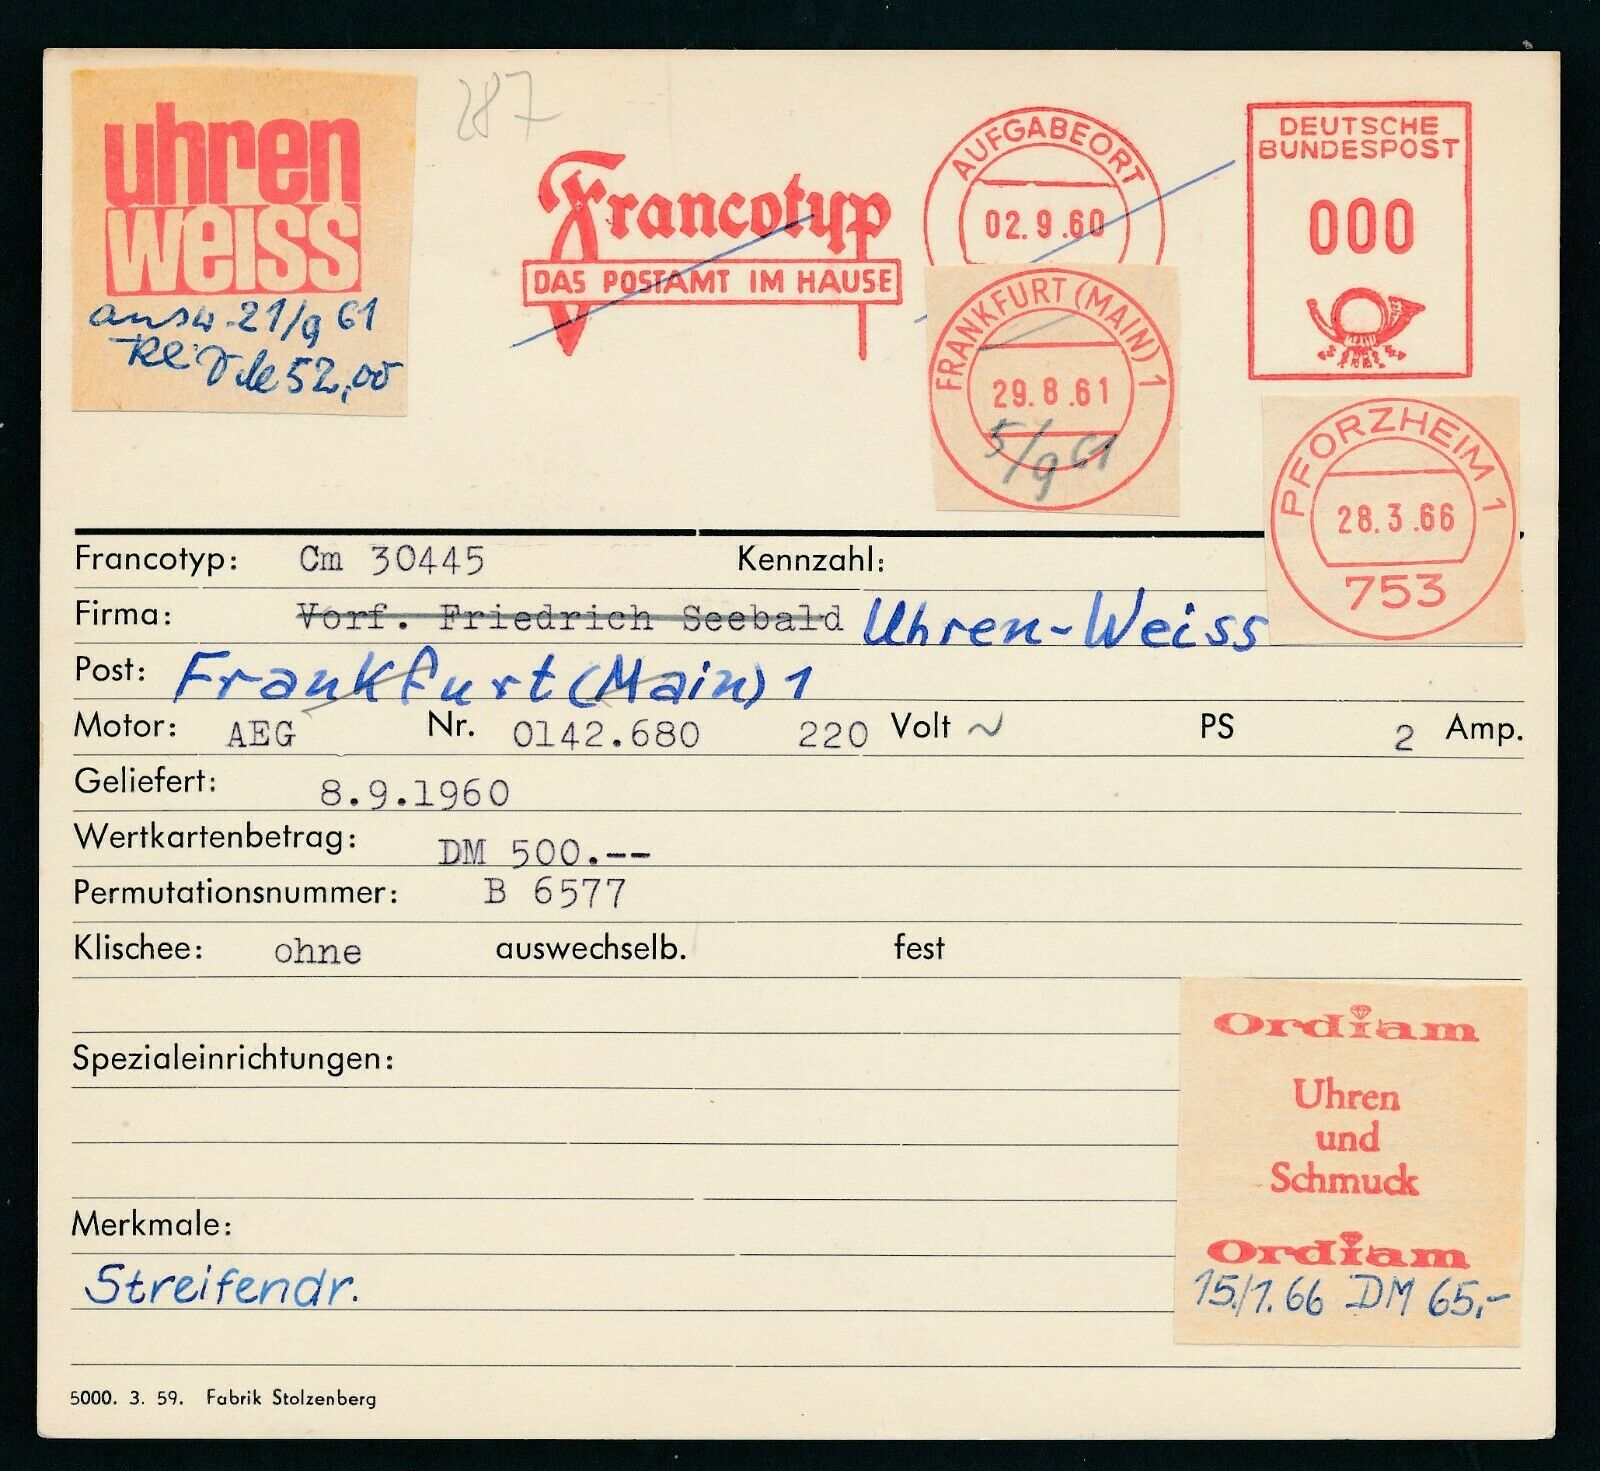 287
uhren
weiss
ausw. 21/9 61
52,00
Francotyp
DAS POSTAMT IM HAUSE
AUFGABEORT
02.9.60
DEUTSCHE
BUNDESPOST
000
FRANKFURT (MAIN) 1
29.8.61
5/9 61
PFORZHEIM 1
28.3.66
753
Francotyp: Cm 30445 Kennzahl:
Firma: Vorf. Friedrich Seebald Uhren-Weiss
Post: Frankfurt (Main) 1
Motor: AEG Nr. 0142.680 220 Volt ~ PS 2 Amp.
Geliefert: 8.9.1960
Wertkartenbetrag: DM 500.--
Permutationsnummer: B 6577
Klischee: ohne auswechselb. fest
Spezialeinrichtungen:
Merkmale:
Streifendr.
Ordiam
Uhren
und
Schmuck
Ordiam
15./1.66 DM 65,-
5000. 3. 59. Fabrik Stolzenberg